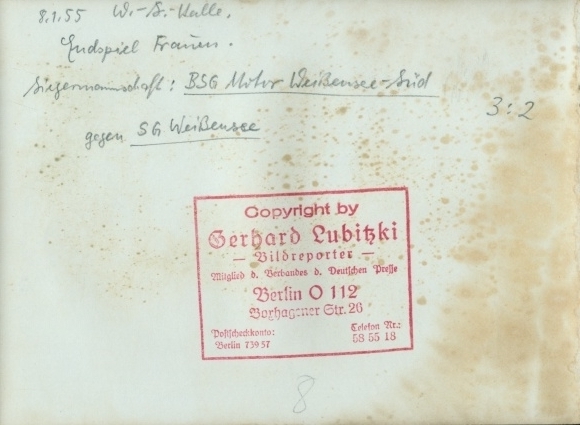 8.1.55 W.-S.-Halle.
Endspiel Frauen.
Siegermannschaft: BSG Motor Weißensee-Süd
3:2
gegen SG Weißensee
Copyright by
Gerhard Lubitzki
— Bildreporter —
Mitglied d. Verbandes d. Deutschen Presse
Berlin O 112
Boxhagener Str. 26
Postscheckkonto: Telefon Nr.:
Berlin 739 57 58 55 18
8